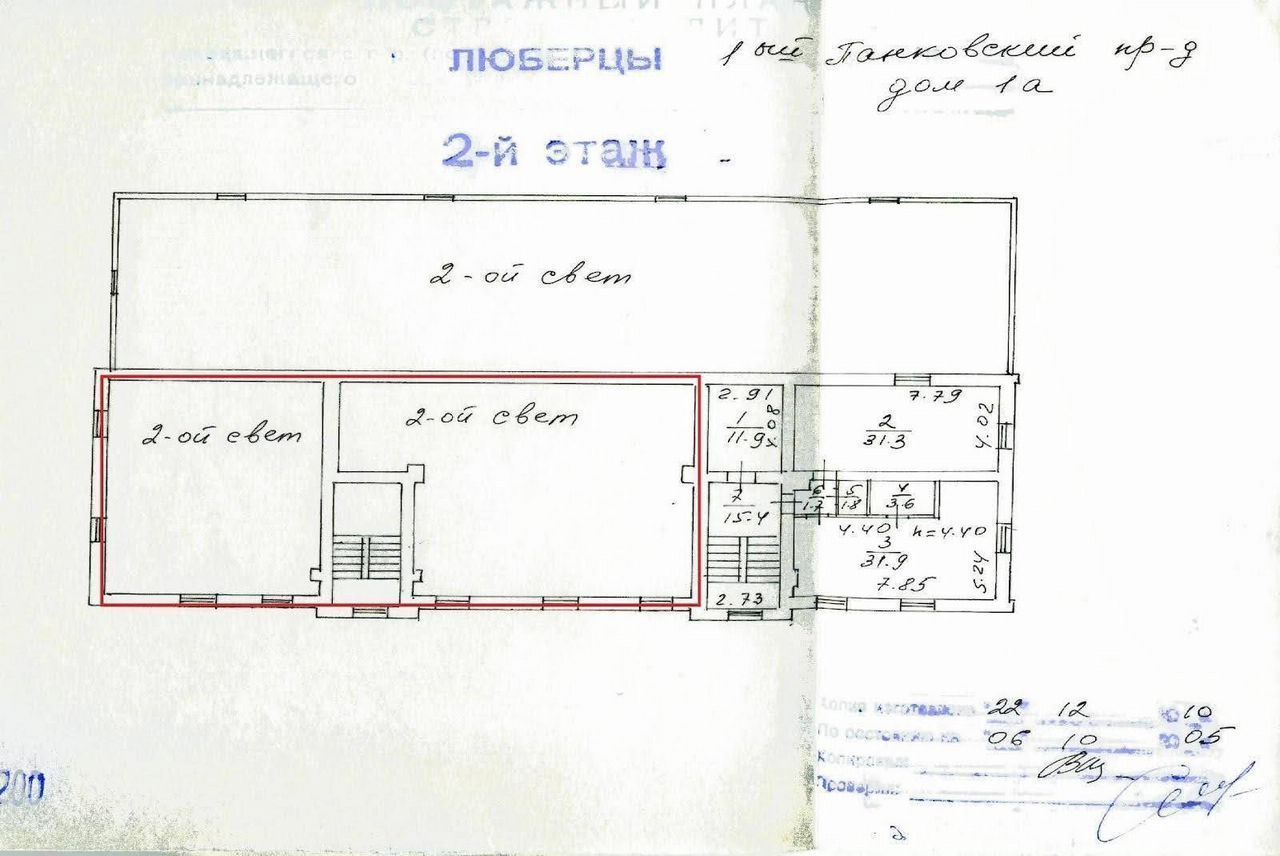 ЛЮБЕРЦЫ
1ый Панковский пр-д
дом 1а
2-й этаж
2-ой свет
2-ой свет
2-ой свет
2.91
1
11.9
4.08
2
31.3
7.79
4.02
7
15.4
2.73
6
1.7
5
1.8
4
3.6
4.40
h=4.40
3
31.9
7.85
5.24
Копия изготовлена 22 12 10
По состоянию на 06 10 05
Копировал
Проверил
200